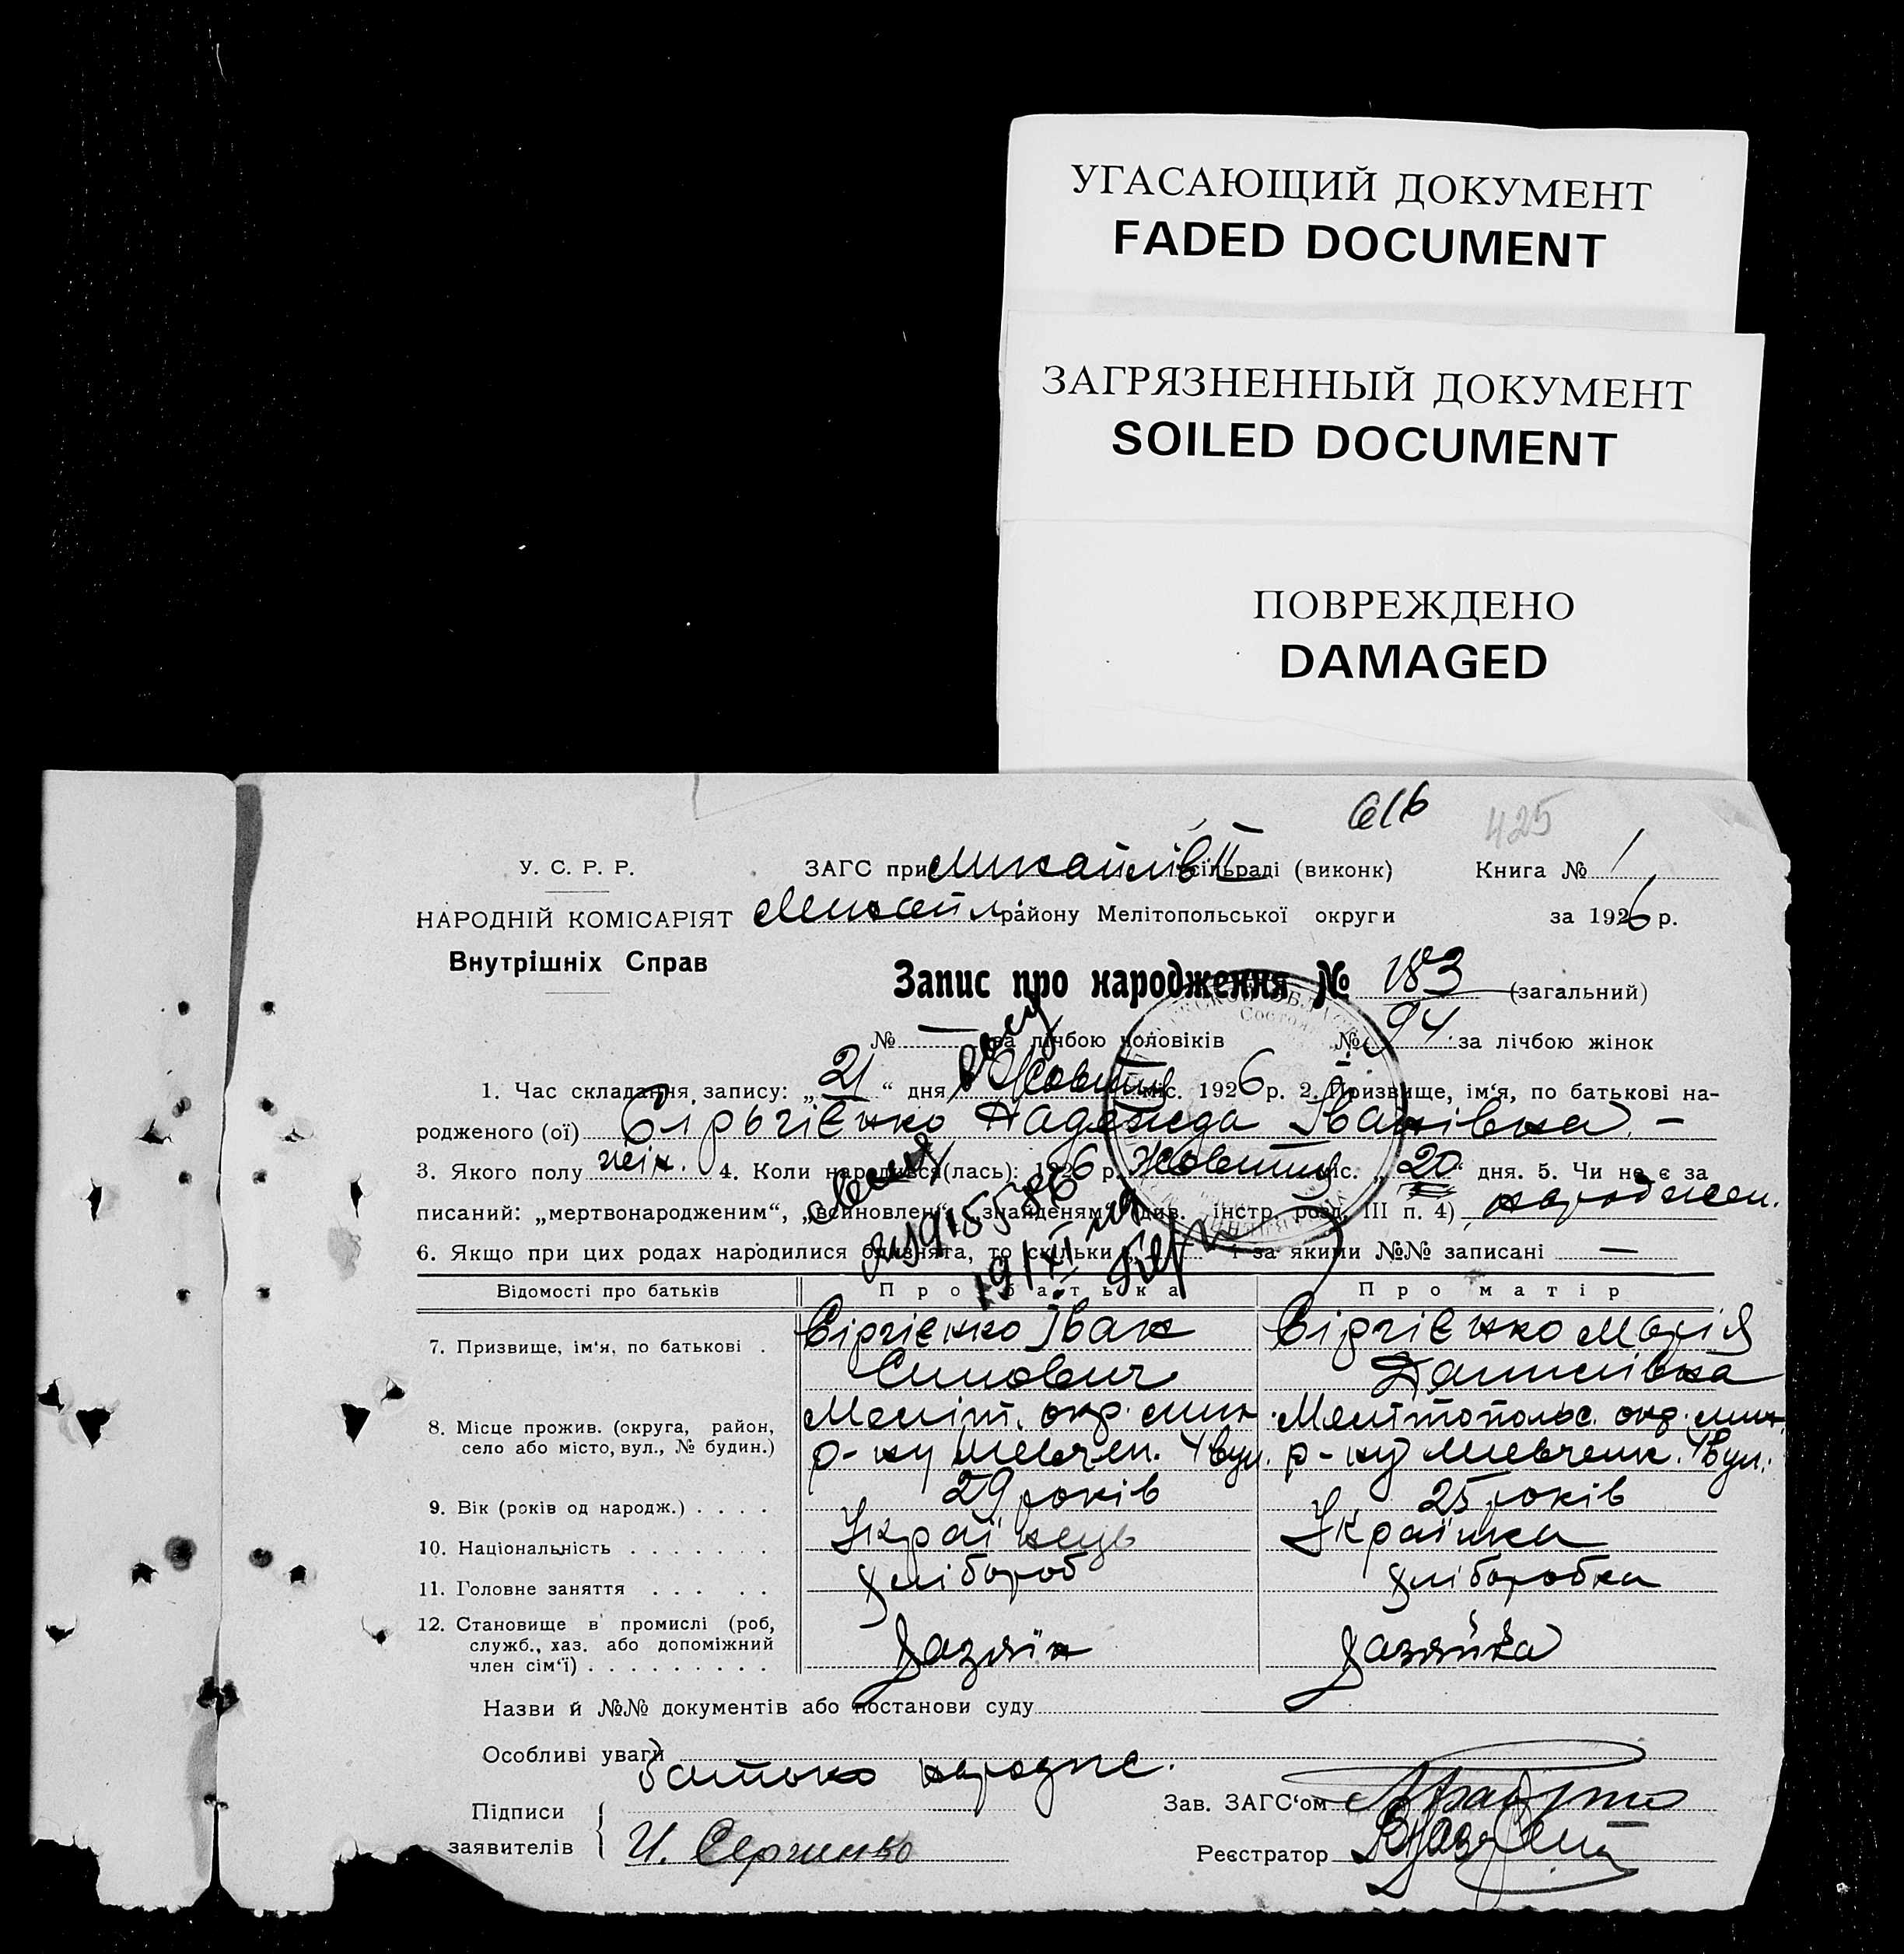 УГАСАЮЩИЙ ДОКУМЕНТ
FADED DOCUMENT
ЗАГРЯЗНЕННЫЙ ДОКУМЕНТ
SOILED DOCUMENT
ПОВРЕЖДЕНО
DAMAGED
616 425
У. С. Р. Р. ЗАГС при Михайлів II сільраді (виконк) Книга № 1
НАРОДНІЙ КОМІСАРІЯТ Михайл. району Мелітопольської округи за 1926 р.
Внутрішніх Справ
Запис про народження № 183 (загальний)
№ — за лічбою чоловіків № 94 за лічбою жінок
1. Час складання запису: „21“ дня Жовтня міс. 1926 р. 2. Призвище, ім‘я, по батькові на-
родженого (ої) Сірьгієнко Надежда Іванівна. —
3. Якого полу жін. 4. Коли народився(лась): 1926 р. Жовтня міс. „20“ дня. 5. Чи не є за
писаний: „мертвонародженим“, „всиновлен“, „знайденям“ (див. інстр. розд. III п. 4) народжен.
6. Якщо при цих родах народилися близнята, то скільки — і за якими №№ записані —
19/XI
Відомості про батьків Про батька Про матір
7. Призвище, ім‘я, по батькові . Сіргієнко Іван Сіргієнко Марія
Данилівна
8. Місце прожив. (округа, район, Меліт. окр. мих. Мелітопольс. окр. мих.
село або місто, вул., № будин.) р-ну Шевчен. 4 вул. р-ну Шевченк. 4 вул.
9. Вік (років од народж.) . . . . 29 років 25 років
10. Національність . . . . . . . Українець Українка
11. Головне заняття . . . . . . Хлібороб Хліборобка
12. Становище в промислі (роб,
служб., хаз. або допоміжний Хазяїн Хазяйка
член сім‘ї) . . . . . . . . .
Назви й №№ документів або постанови суду
Особливі уваги
батько
Підписи Зав. ЗАГС‘ом
заявителів И. Сергиенко Реєстратор